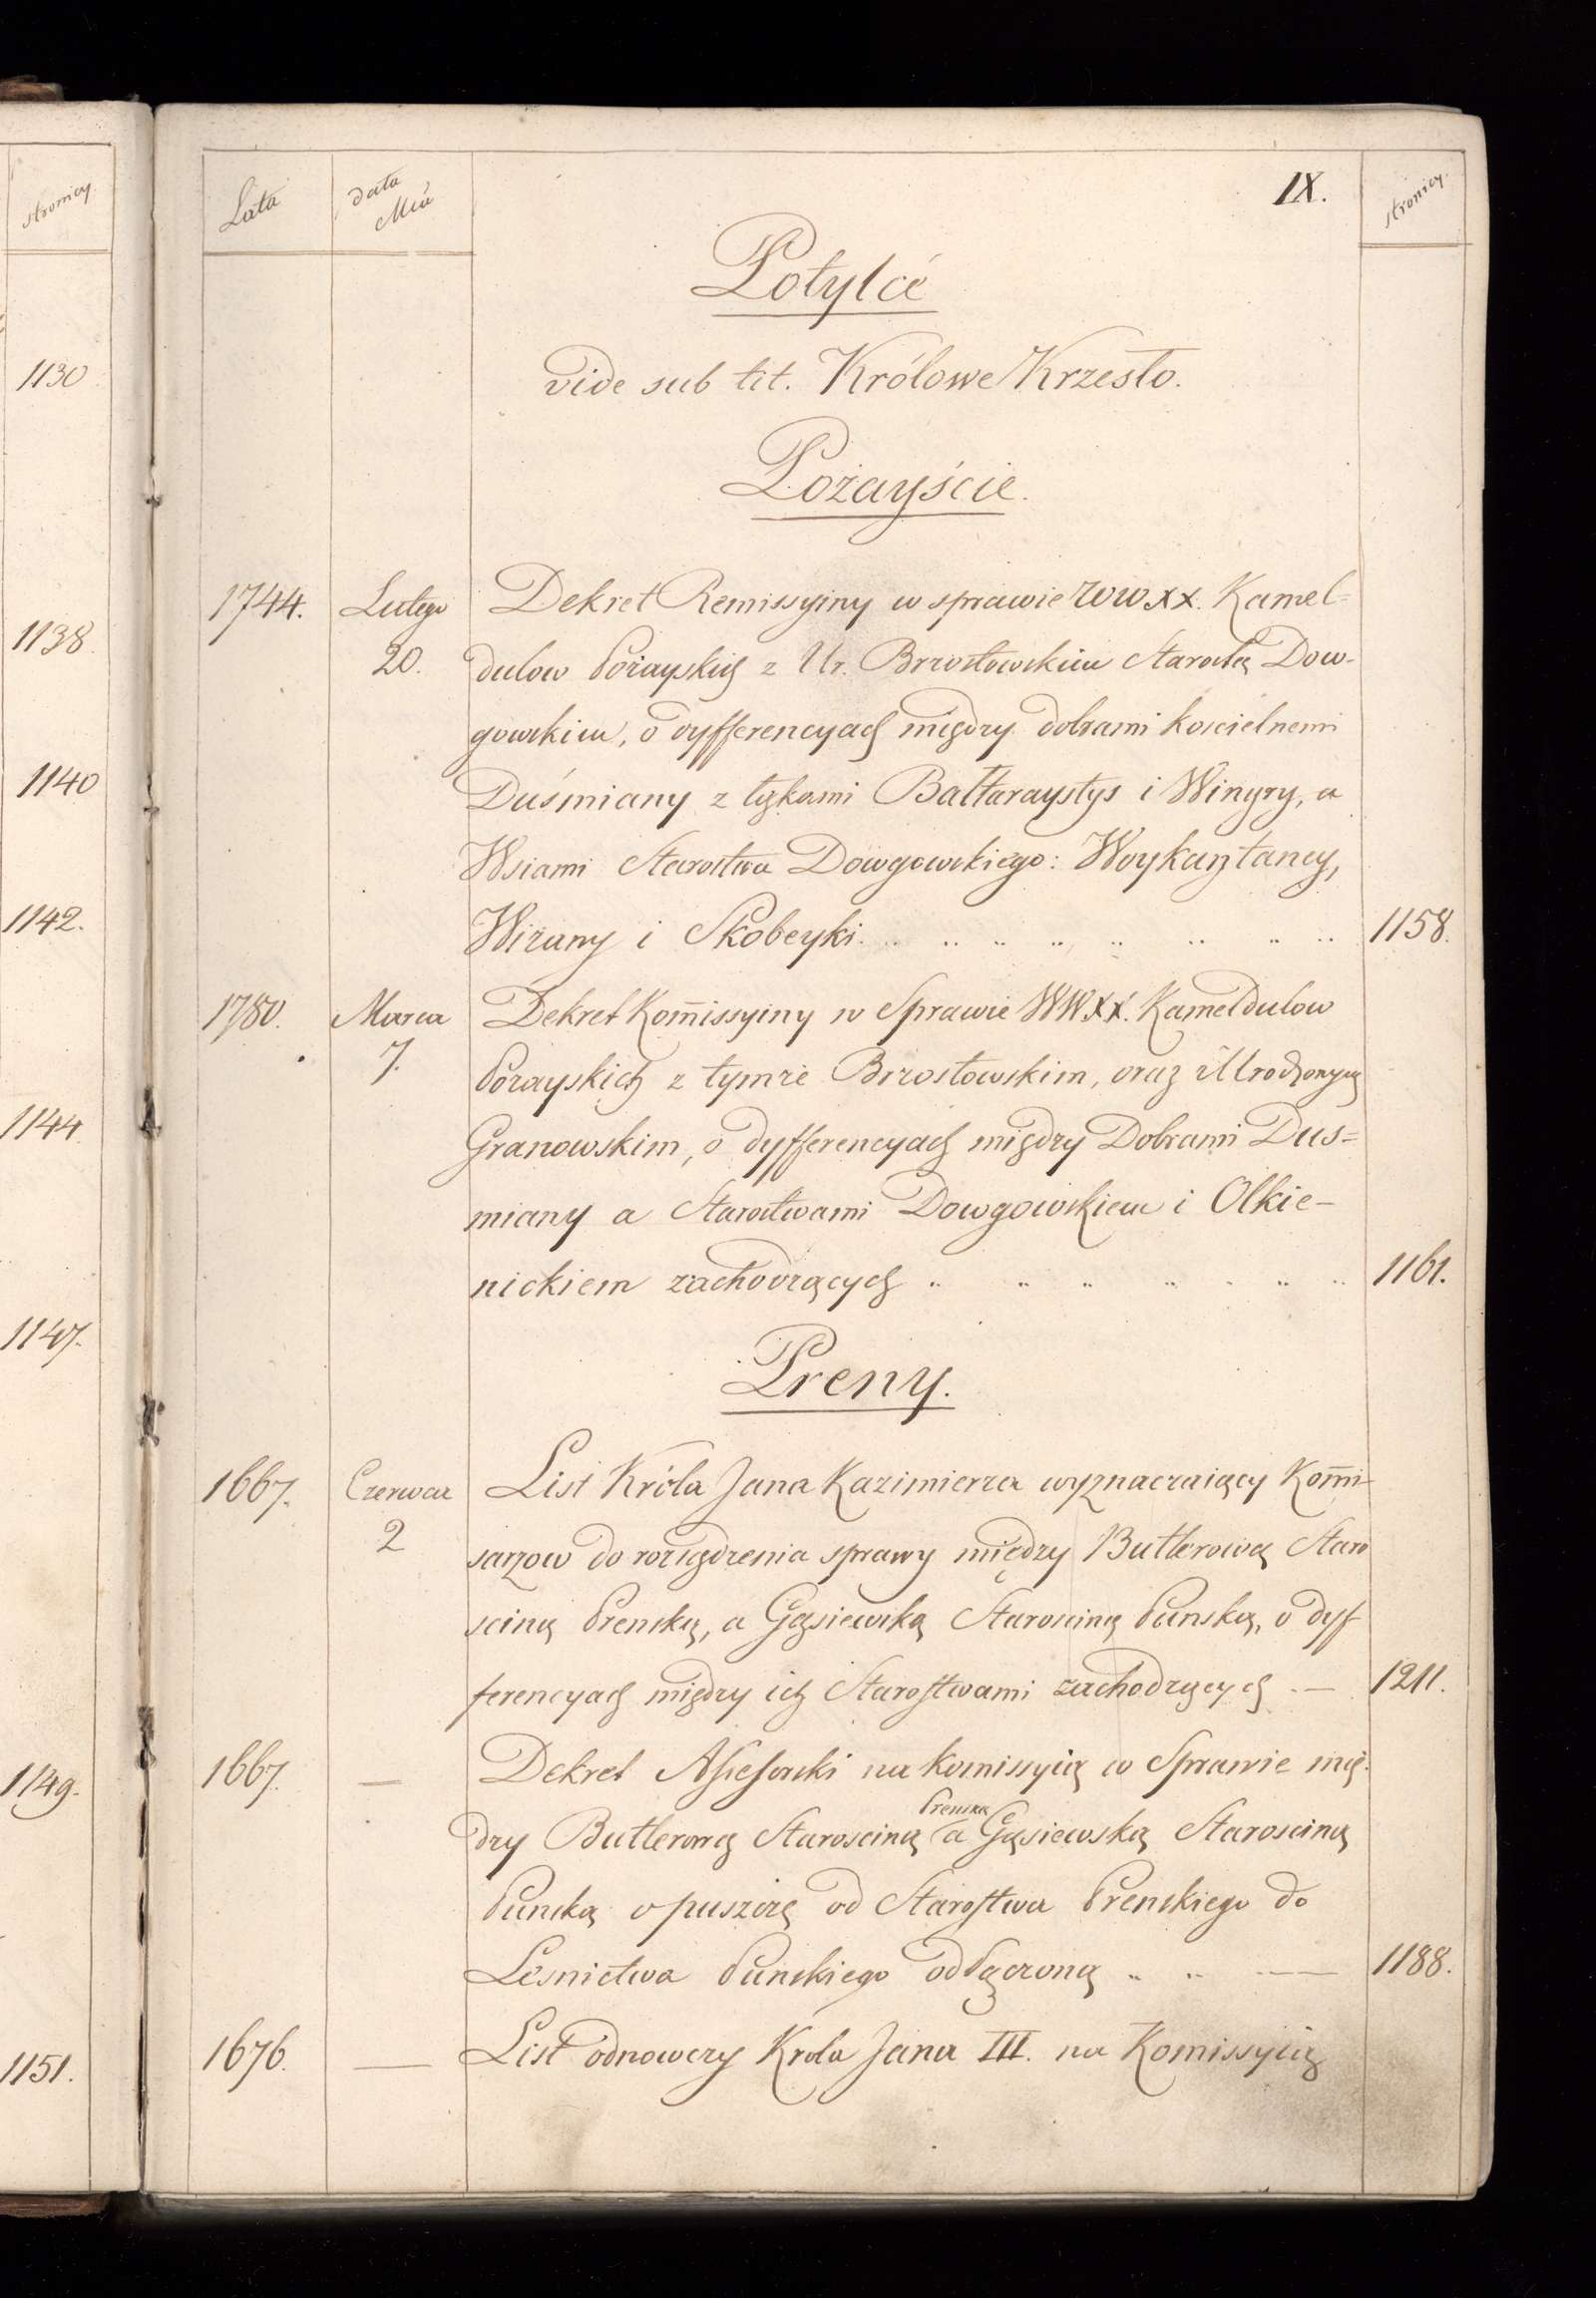 stronicy.
1130
1138.
1140
1142.
1144
1147.
1149.
1151.
Lata
data
Mca
IX.
stronicy.
Potylcé
vide sub tit. Królowe Krzesło.
Pożayście.
1744. Lutego Dekret Remissyiny w sprawie WW XX. Kamel=
20. dulow Pożayskich z Ur. Brzostowskim Starostą Dow-
gowskim, o dyfferencyach między dobrami koscielnemi
Duśmiany z łąkami Bałtaraystys i Wingry, a
Wsiami Starostwa Dowgowskiego: Woykaztancy,
Wiżany i Skobeyki. 1158.
1780. Marca Dekret Kom̄issyiny w Sprawie WW XX. Kameldulow
7. Pożayskich z tymże Brzostowskim, oraz Urodzonym
Granowskim, o dyfferencyach między Dobrami Dus=
miany a Starostwami Dowgowskiem i Olkie-
nickiem zachodzących 1161.
Preny.
1667. Czerwca List Króla Jana Kazimierza wyznaczaiący Kom̄i-
2 sarzow do roziądzenia sprawy między Butlerową Staro
sciną Prenską, a Gąsiewską Starosciną Puńską, o dyf
ferencyach między ich Starostwami zachodzących — 1211.
1667. — Dekret Assessorski na komissyią w Sprawie mię-
Prenską
dzy Butlerową Starosciną a Gąsiewską Starosciną
Puńską o puszczę od Starostwa Prenskiego do
Leśnictwa Puńskiego odłączoną — 1188.
1676. — List odnowczy Krola Jana III. na Komissyią